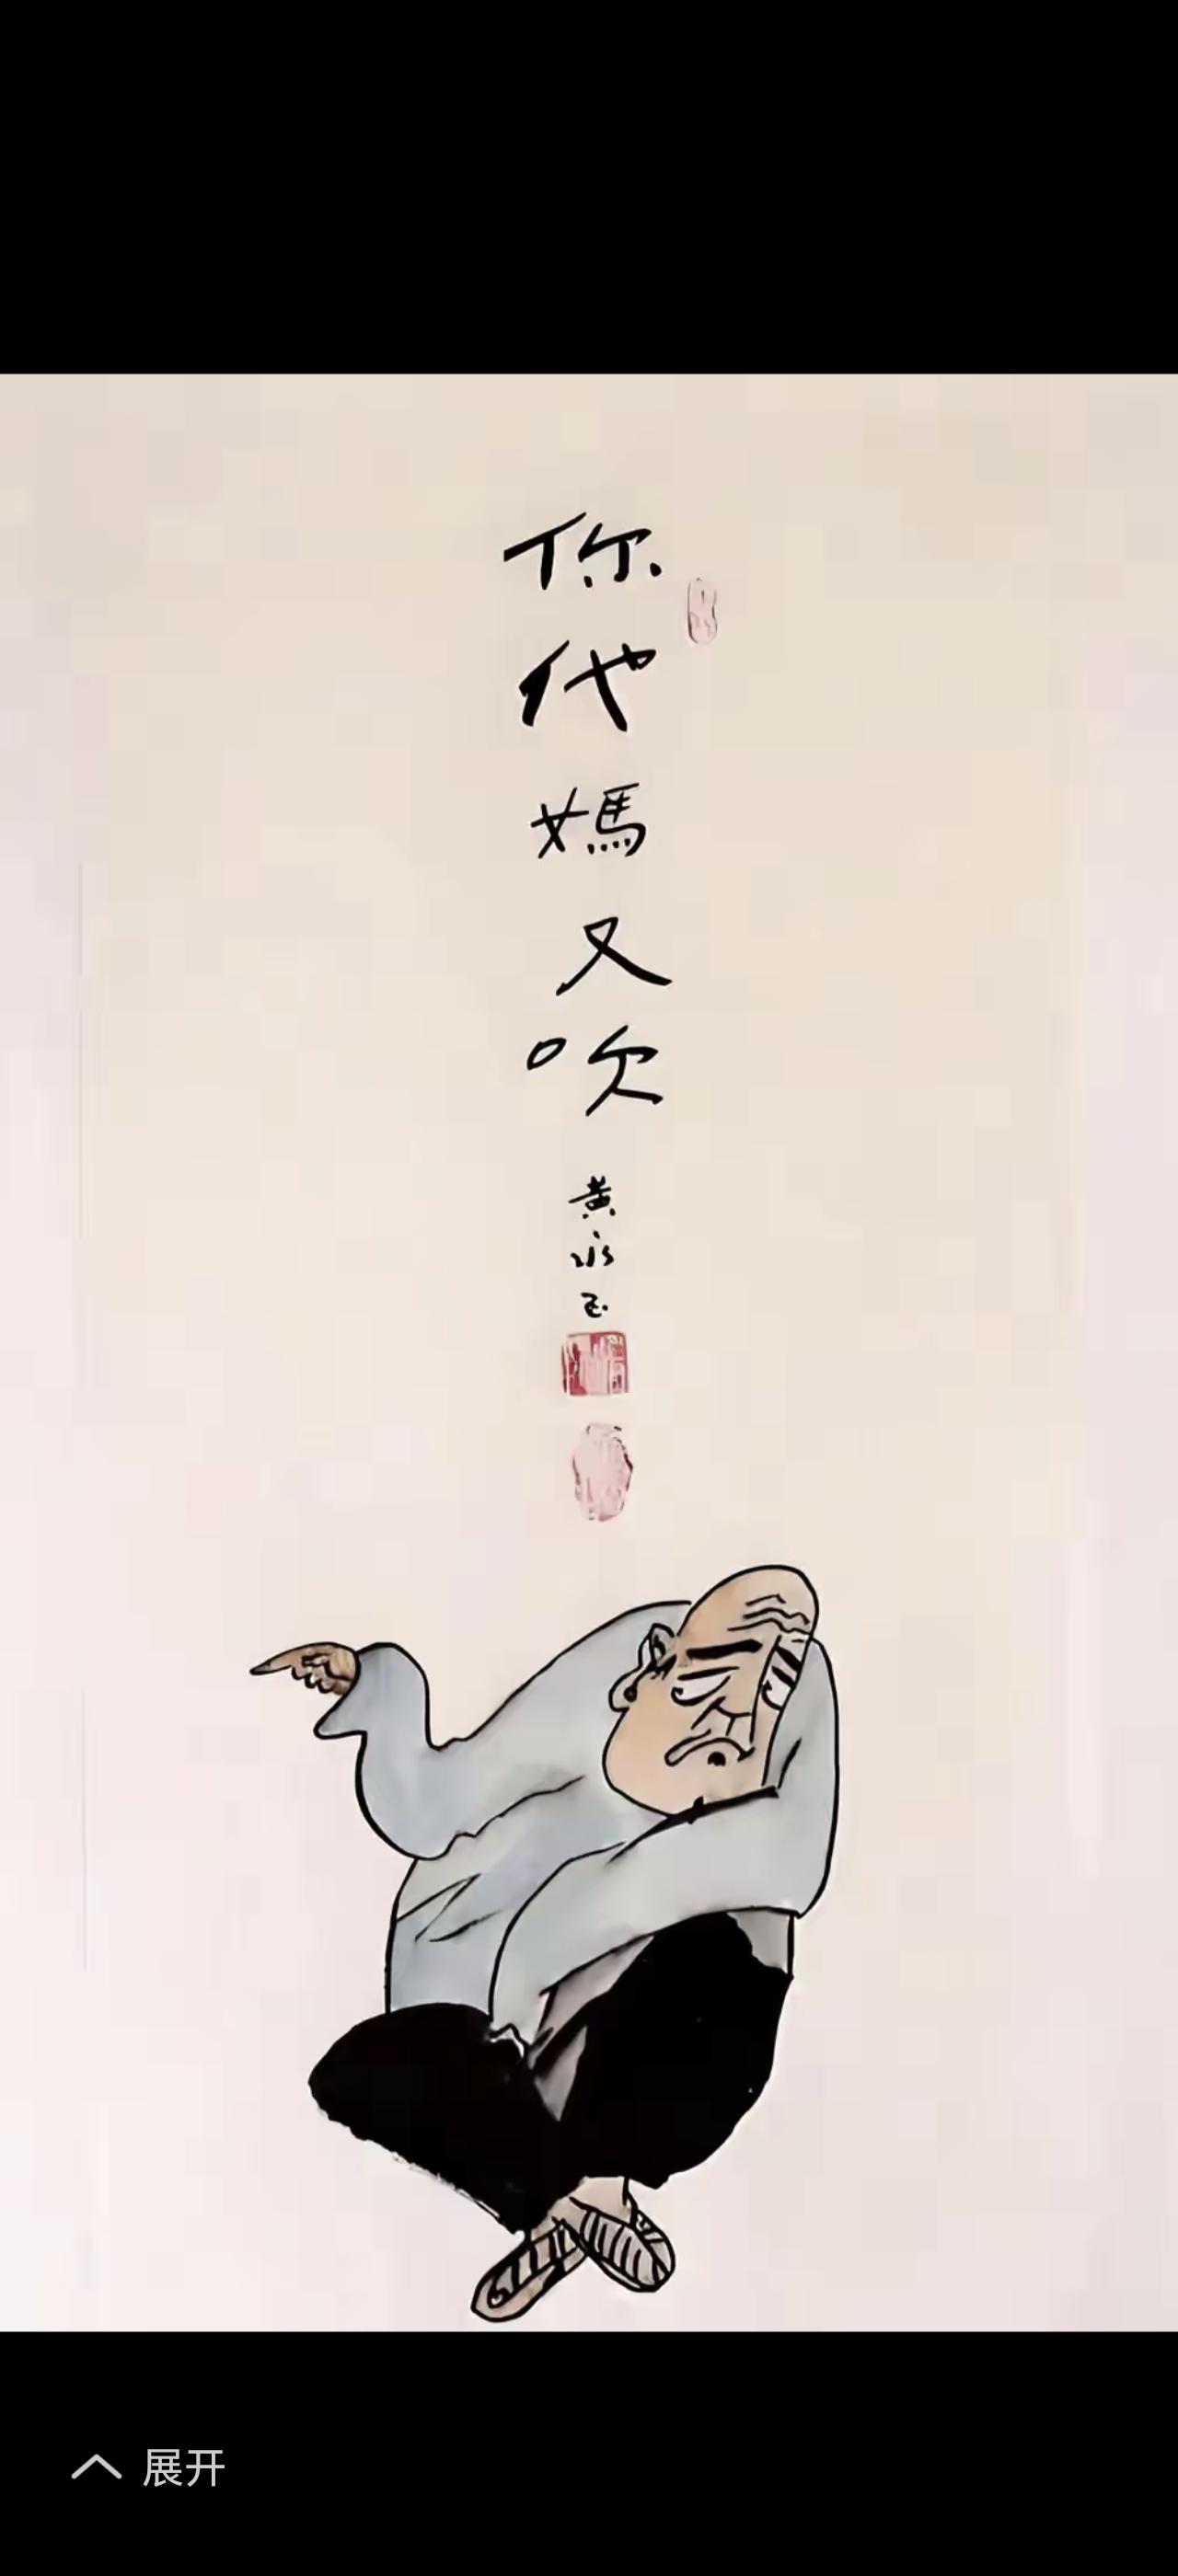 你代媽又吹
黄永玉
展开